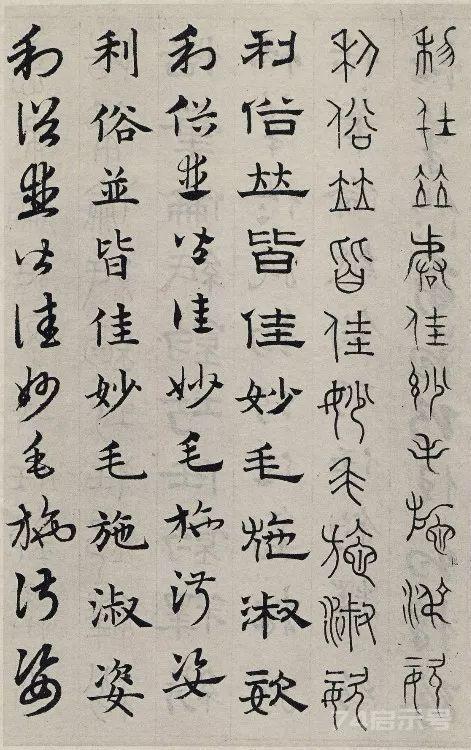 利俗並皆佳妙毛施淑姿
利俗並皆佳妙毛施淑姿
利俗並皆佳妙毛施淑姿
利俗並皆佳妙毛施淑姿
利俗並皆佳妙毛施淑姿
利俗並皆佳妙毛施淑姿
74启示号